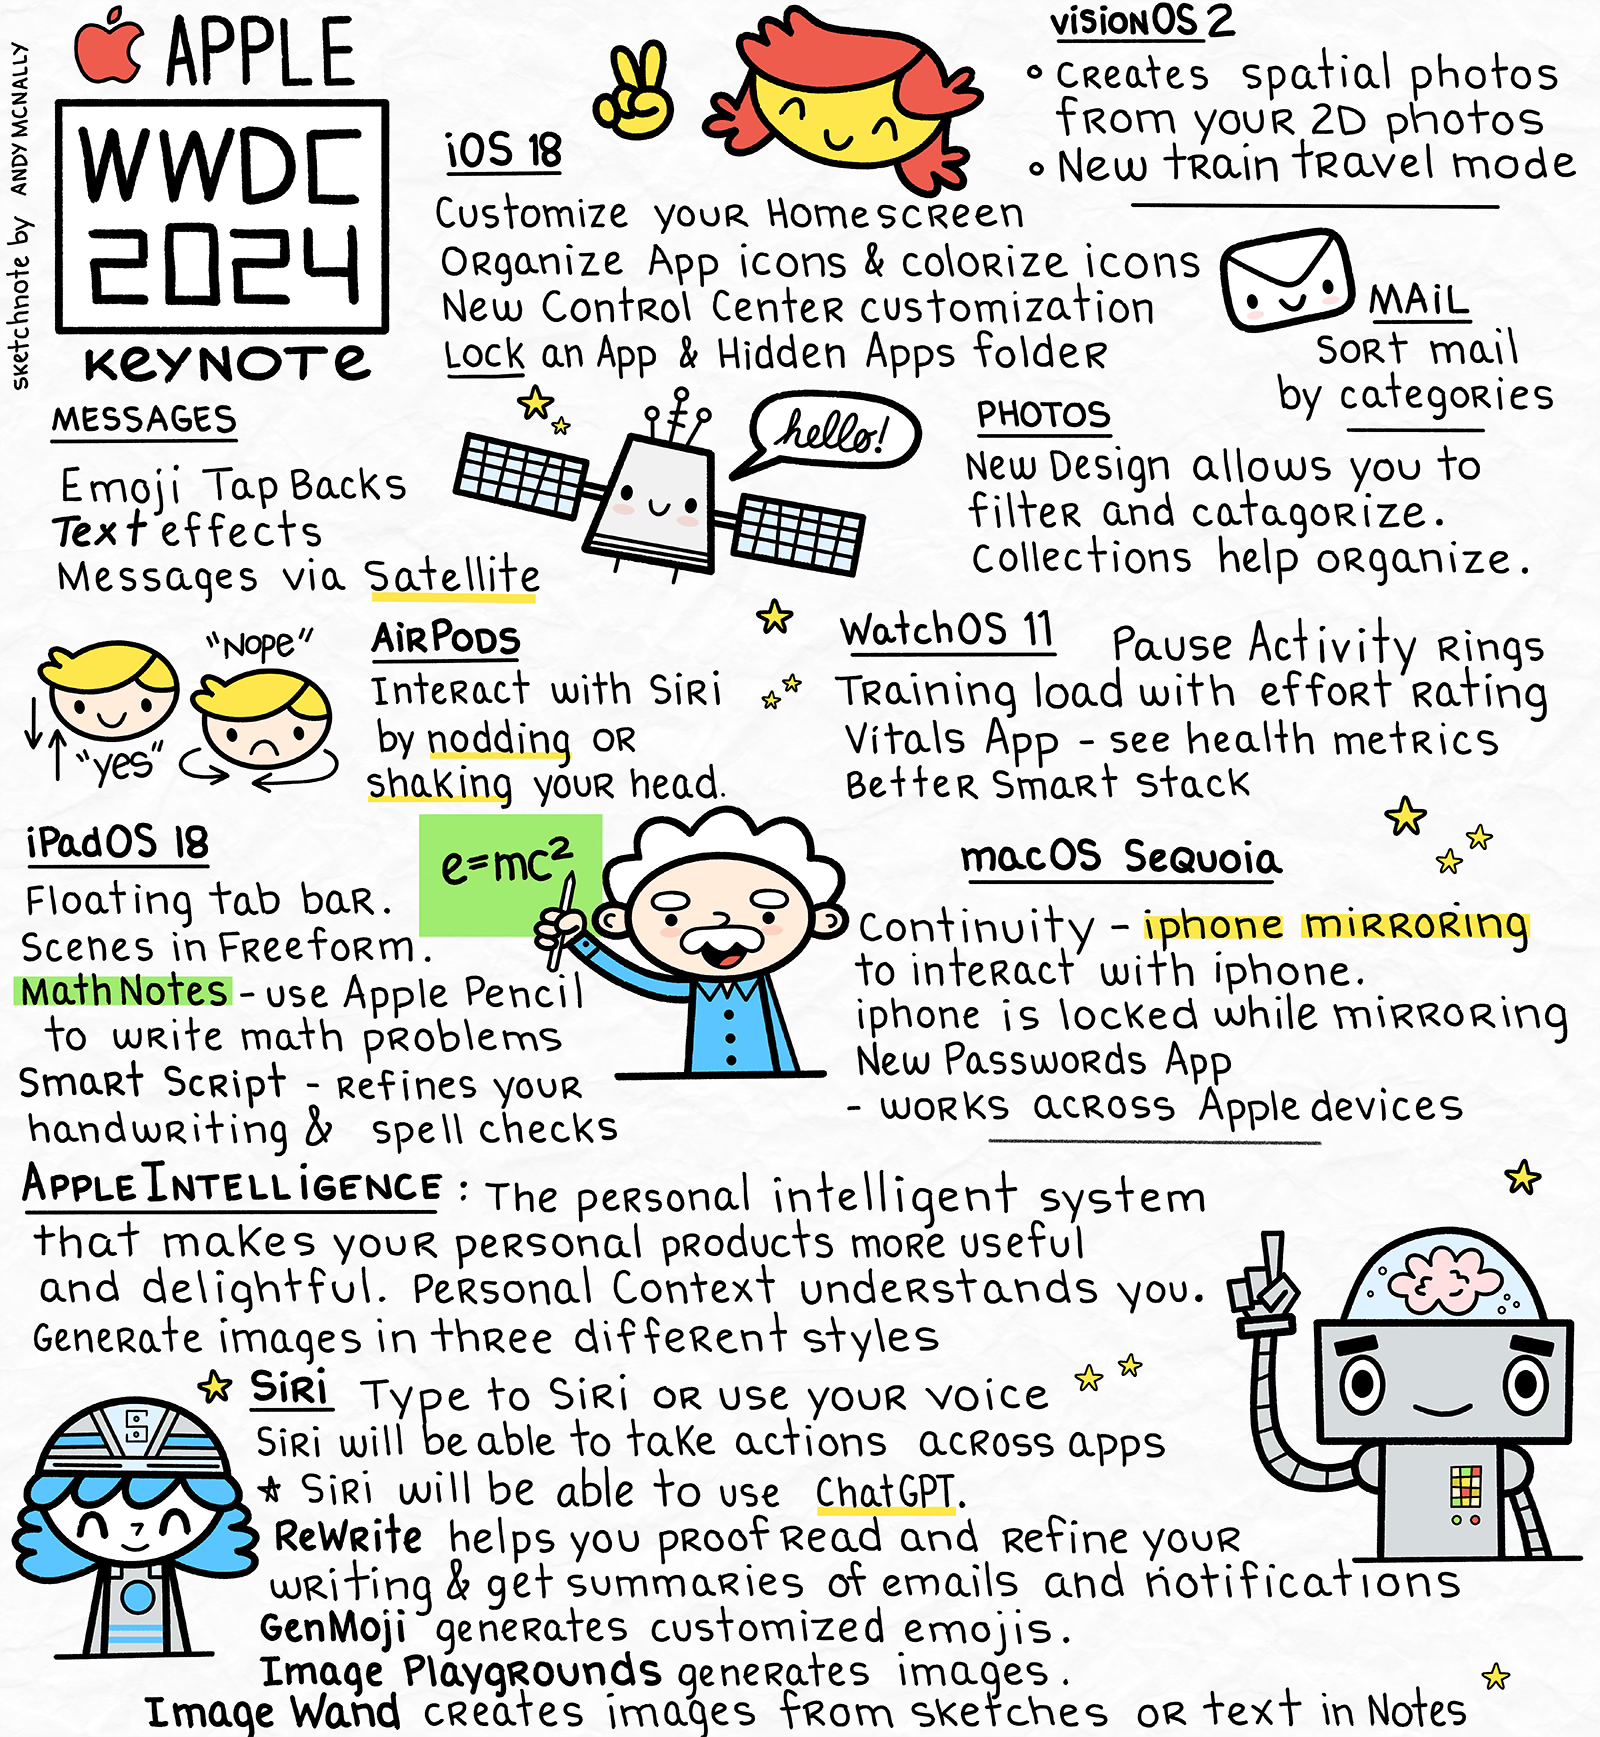 APPLE
WWDC
2024
KEYNOTE
sketchnote by ANDY MCNALLY
iOS 18
Customize your Homescreen
Organize App icons & colorize icons
New Control Center customization
Lock an App & Hidden Apps folder
visionOS 2
• Creates spatial photos
from your 2D photos
• New train travel mode
MAiL
Sort mail
by categories
MESSAGES
Emoji Tap Backs
Text effects
Messages via Satellite
hello!
PHOTOS
New Design allows you to
filter and catagorize.
Collections help organize.
"Nope"
"yes"
AirPods
Interact with Siri
by nodding or
shaking your head.
WatchOS 11 Pause Activity Rings
Training load with effort rating
Vitals App - see health metrics
Better Smart stack
iPadOS 18
Floating tab bar.
Scenes in Freeform.
Math Notes - use Apple Pencil
to write math problems
Smart Script - refines your
handwriting & spell checks
e=mc²
macOS Sequoia
Continuity - iphone mirroring
to interact with iphone.
iphone is locked while mirroring
New Passwords App
- works across Apple devices
APPLE INTELLiGENCE : The personal intelligent system
that makes your personal products more useful
and delightful. Personal Context understands you.
Generate images in three different styles
Siri Type to Siri or use your voice
Siri will be able to take actions across apps
☆ Siri will be able to use ChatGPT.
ReWrite helps you proof read and refine your
writing & get summaries of emails and notifications
GenMoji generates customized emojis.
Image Playgrounds generates images.
Image Wand creates images from sketches or text in Notes
S